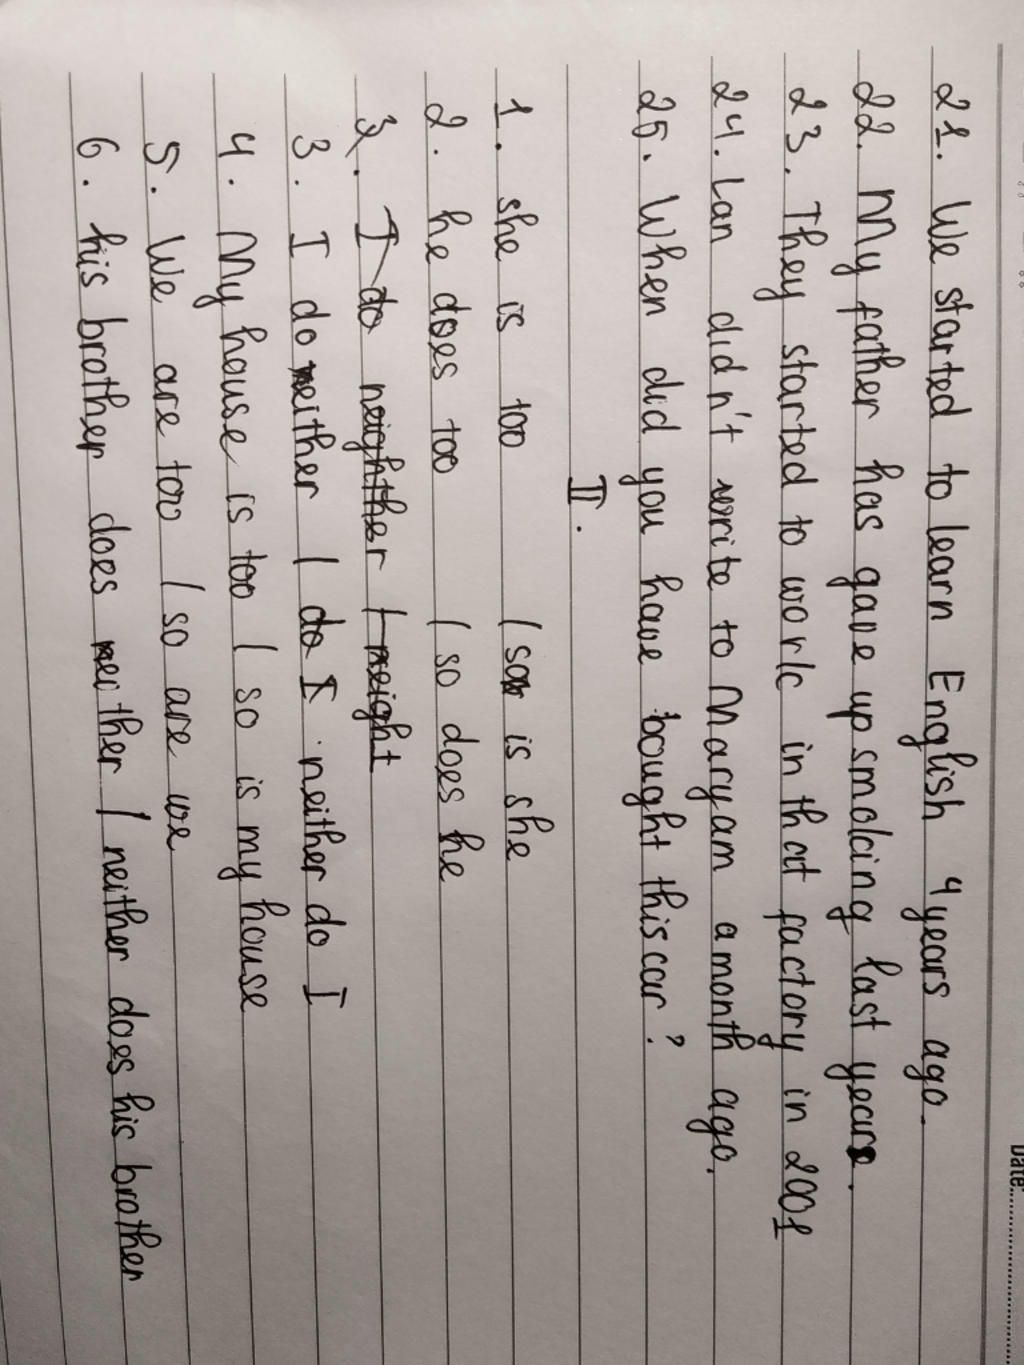 Date:
21. We started to learn English 4 years ago.
22. My father has gave up smoking last year.
23. They started to work in that factory in 2001
24. Lan didn't write to Maryam a month ago.
25. When did you have bought this car?
II.
1. she is too / so is she
2. he does too / so does he
3. I do neighther / neight
3. I do neither / do I neither do I
4. My house is too / so is my house
5. We are too / so are we
6. his brother does neither / neither does his brother